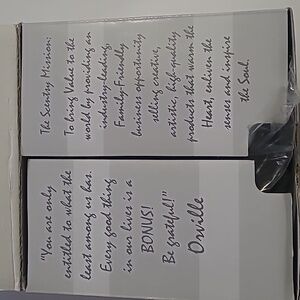 The Scentsy Mission:
To bring Value to the
world by providing an
industry-leading,
Family-Friendly
business opportunity
selling creative,
artistic, high-quality
products that warm the
Heart, enliven the
senses and inspire
the Soul.
"You are only
entitled to what the
least among us has.
Every good thing
in our lives is a
BONUS!
Be grateful!"
Orville